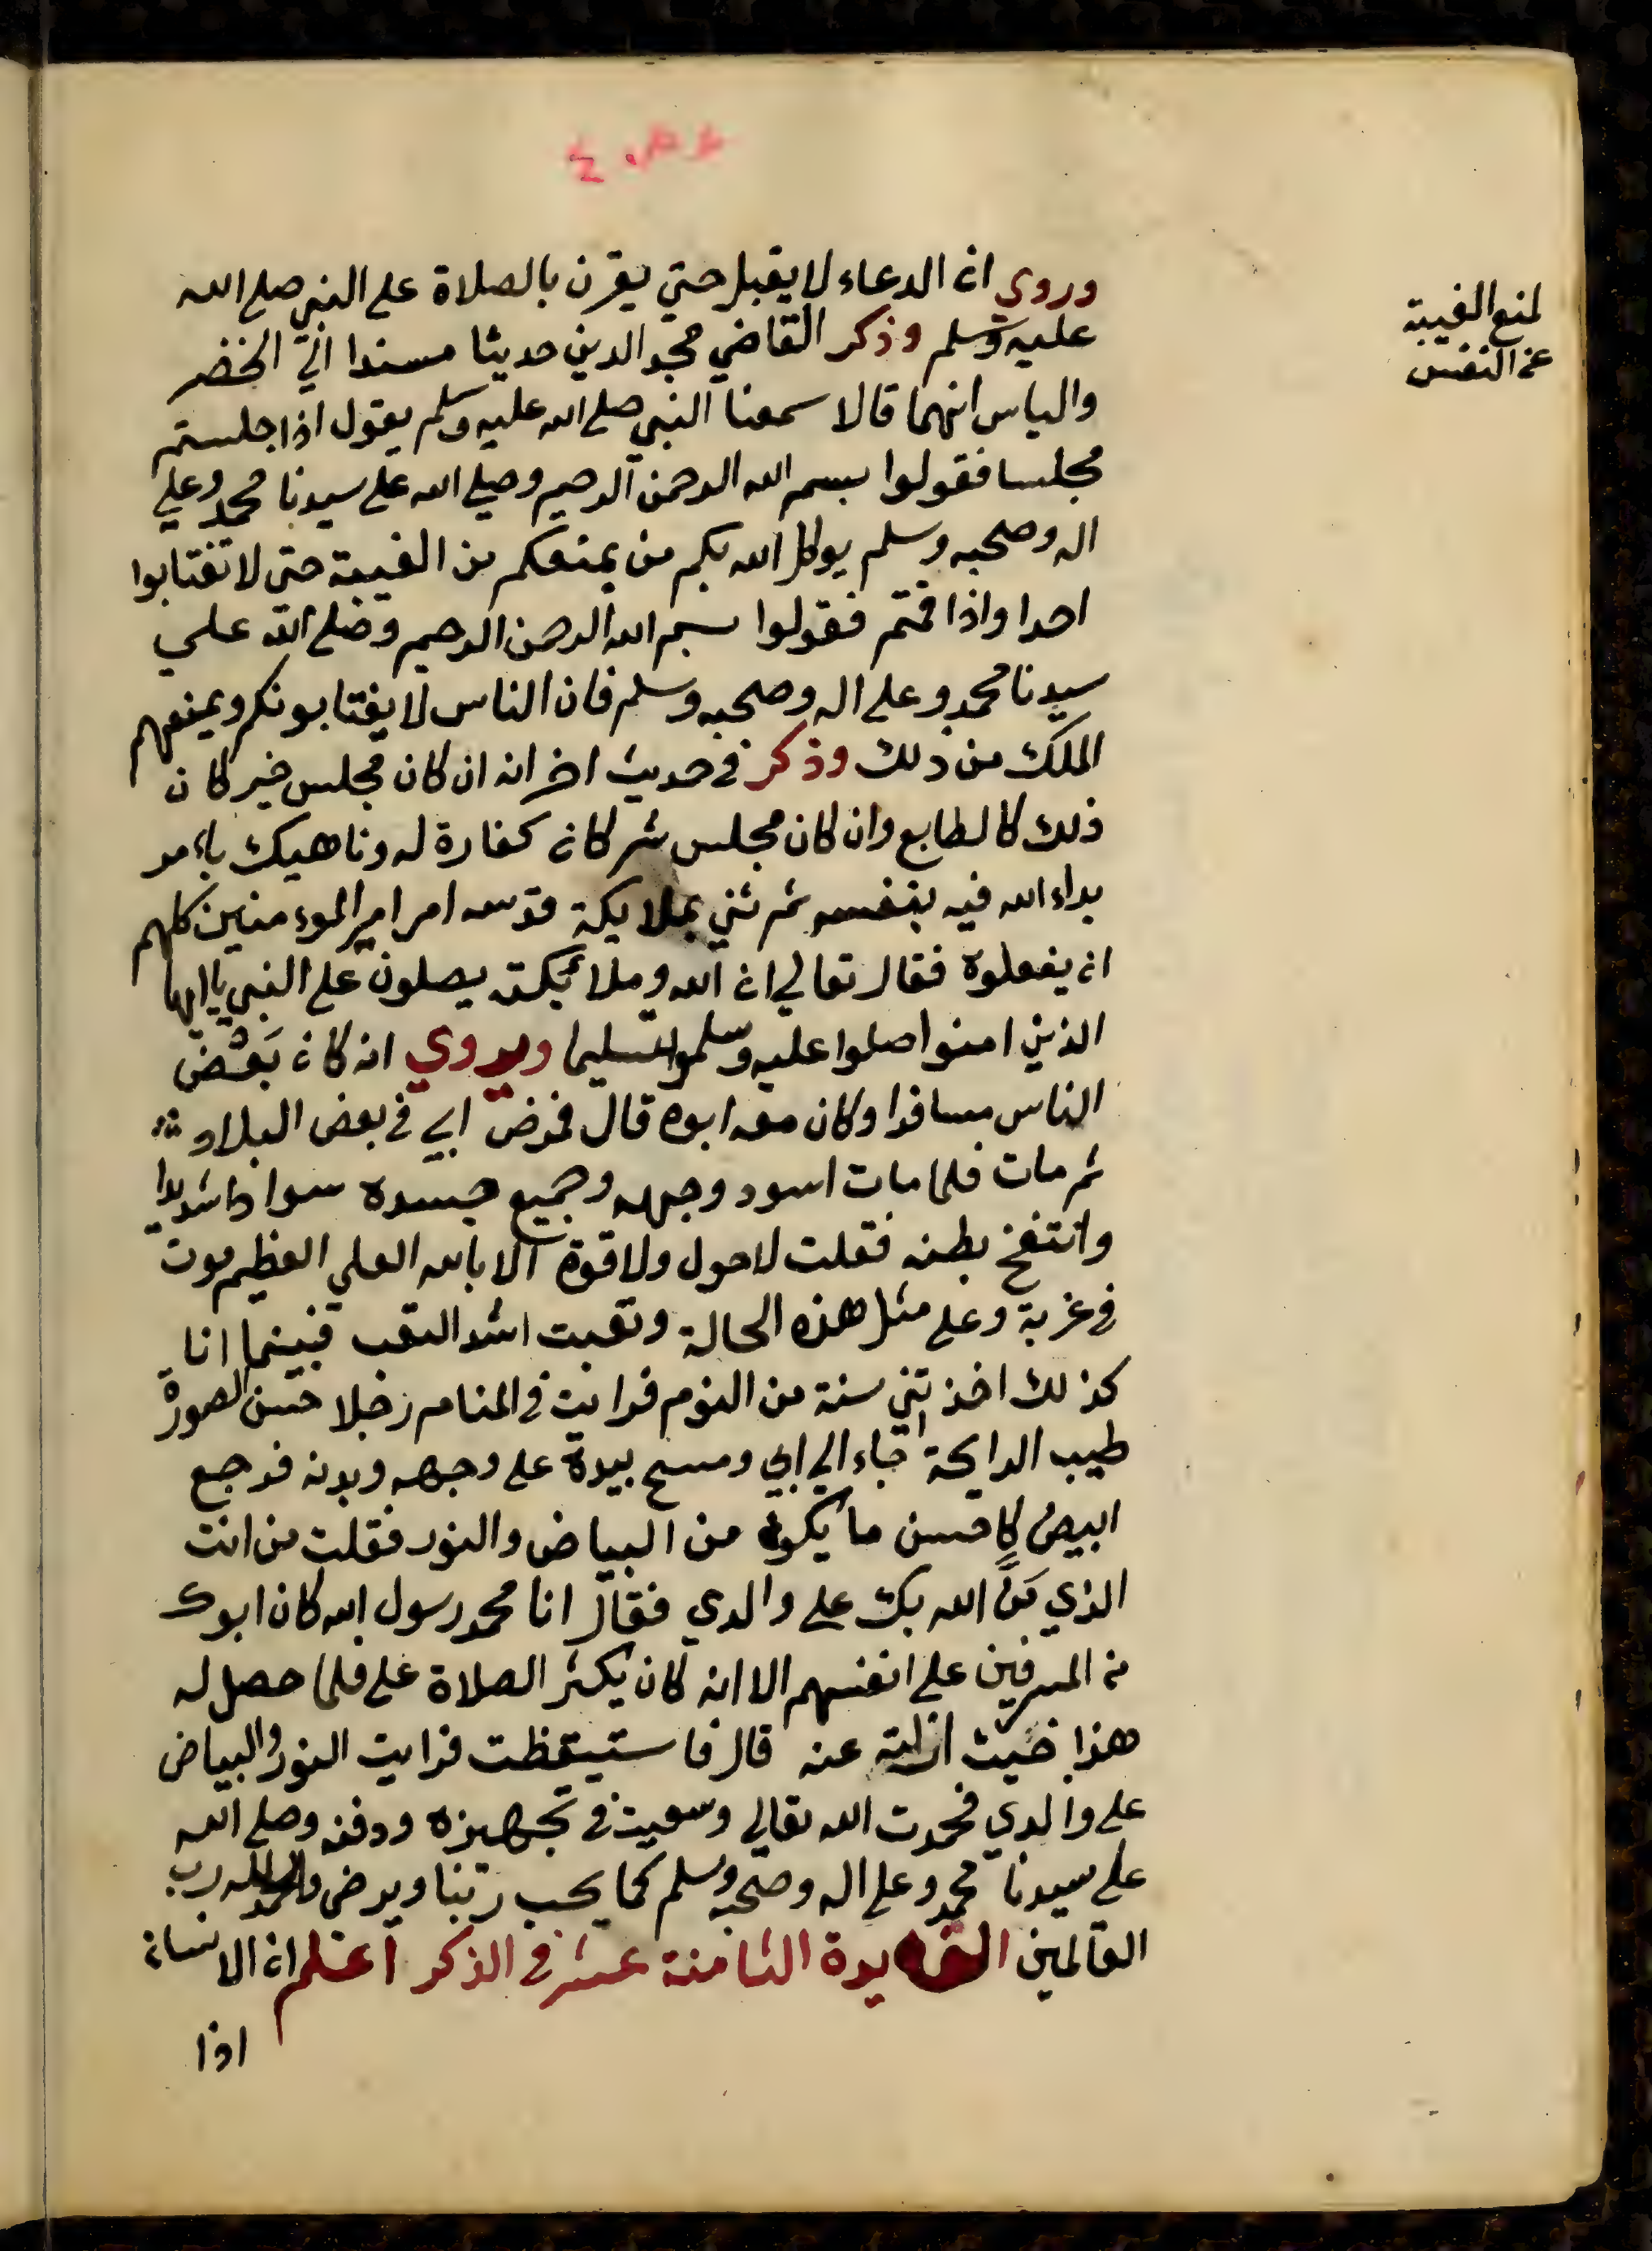 لمنع الغيبة
عن النفس
وروي ان الدعاء لا يقبل حتي يقرن بالصلاة علي النبي صلي الله
عليه وسلم وذكر القاضي مجد الدين حديثا مسندا الي الخضر
والياس انهما قالا سمعنا النبي صلي الله عليه وسلم يقول اذا جلستم
مجلسا فقولوا بسم الله الرحمن الرحيم وصلي الله علي سيدنا محمد وعلي
اله وصحبه وسلم يوكل الله بكم من يمنعكم من الغيبة حتى لا تغتابوا
احدا واذا قمتم فقولوا بسم الله الرحمن الرحيم وصلي الله علي
سيدنا محمد وعلي اله وصحبه وسلم فان الناس لا يغتابونكم ويمنعهم
الملك من ذلك وذكر في حديث اخر انه ان كان مجلس خير كان
ذلك كالطابع وان كان مجلس شر كان كفارة له وناهيك باءمر
بداء الله فيه بنفسه ثم ثني بملايكة قدسه امر امر الموءمنين كلهم
ان يفعلوه فقال تعالي ان الله وملائكته يصلون علي النبي ياايها
الذين امنوا صلوا عليه وسلموا تسليما ويروي انه كان بَعْض
الناس مسافرا وكان معه ابوه قال فمرض ابي في بعض البلاد
ثم مات فلما مات اسود وجهه وجميع جسده سوادا شديدا
وانتفخ بطنه فقلت لا حول ولا قوة الا بالله العلي العظيم موت
في غربة وعلي مثل هذه الحالة وتعبت اشد التعب فبينما انا
كذلك اخذتني سنة من النوم فرايت في المنام رجلا حسن الصورة
طيب الرايحة جاء الي ابي ومسح بيده علي وجهه وبدنه فرجع
ابيض كاحسن ما يكون من البياض والنور فقلت من انت
الذي مَنَّ الله بك علي والدي فقال انا محمد رسول الله كان ابوك
من المسرفين علي انفسهم الا انه كان يكثر الصلاة علي فلما حصل له
هذا جيت ازلته عنه قال فاستيقظت فرايت النور والبياض
علي والدي فحمدت الله تعالي وسعيت في تجهيزه ودفنه وصلي الله
علي سيدنا محمد وعلي اله وصحبه وسلم كما يحب ربنا ويرضي والحمد لله رب
العالمين الفايدة الثامنة عشر في الذكر اعلم ان الانسان
اذا